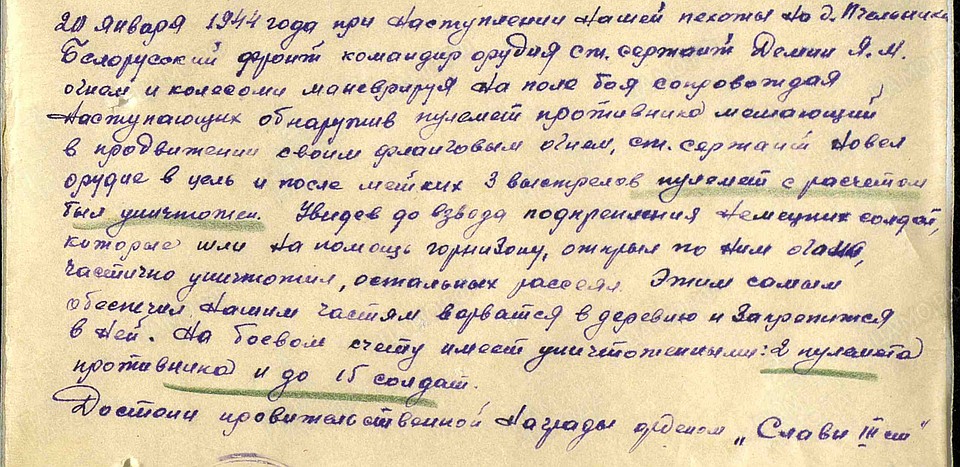 20 января 1944 года при наступлении нашей пехоты на д. Пчельники
Белорусский фронт командир орудия ст. сержант Демин Я. М.
огнем и колесоми маневрируя на поле боя сопровождая
наступающих обнаружив пулемет противника мешающий
в продвижении своим фланговым огнем, ст. сержант навел
орудие в цель и после метких 3 выстрелов пулемет с расчетом
был уничтожен. Увидев до взвода подкрепления немецких солдат,
которые шли на помощь горнизону, открыл по ним огонь,
частично уничтожил, остальных рассеял. Этим самым
обеспечил нашим частям ворватся в деревню и закрепится
в ней. На боевом счету имеет уничтоженными: 2 пулемета
противника и до 15 солдат.
Достоин провительственной награды орденом „Славы III ст"